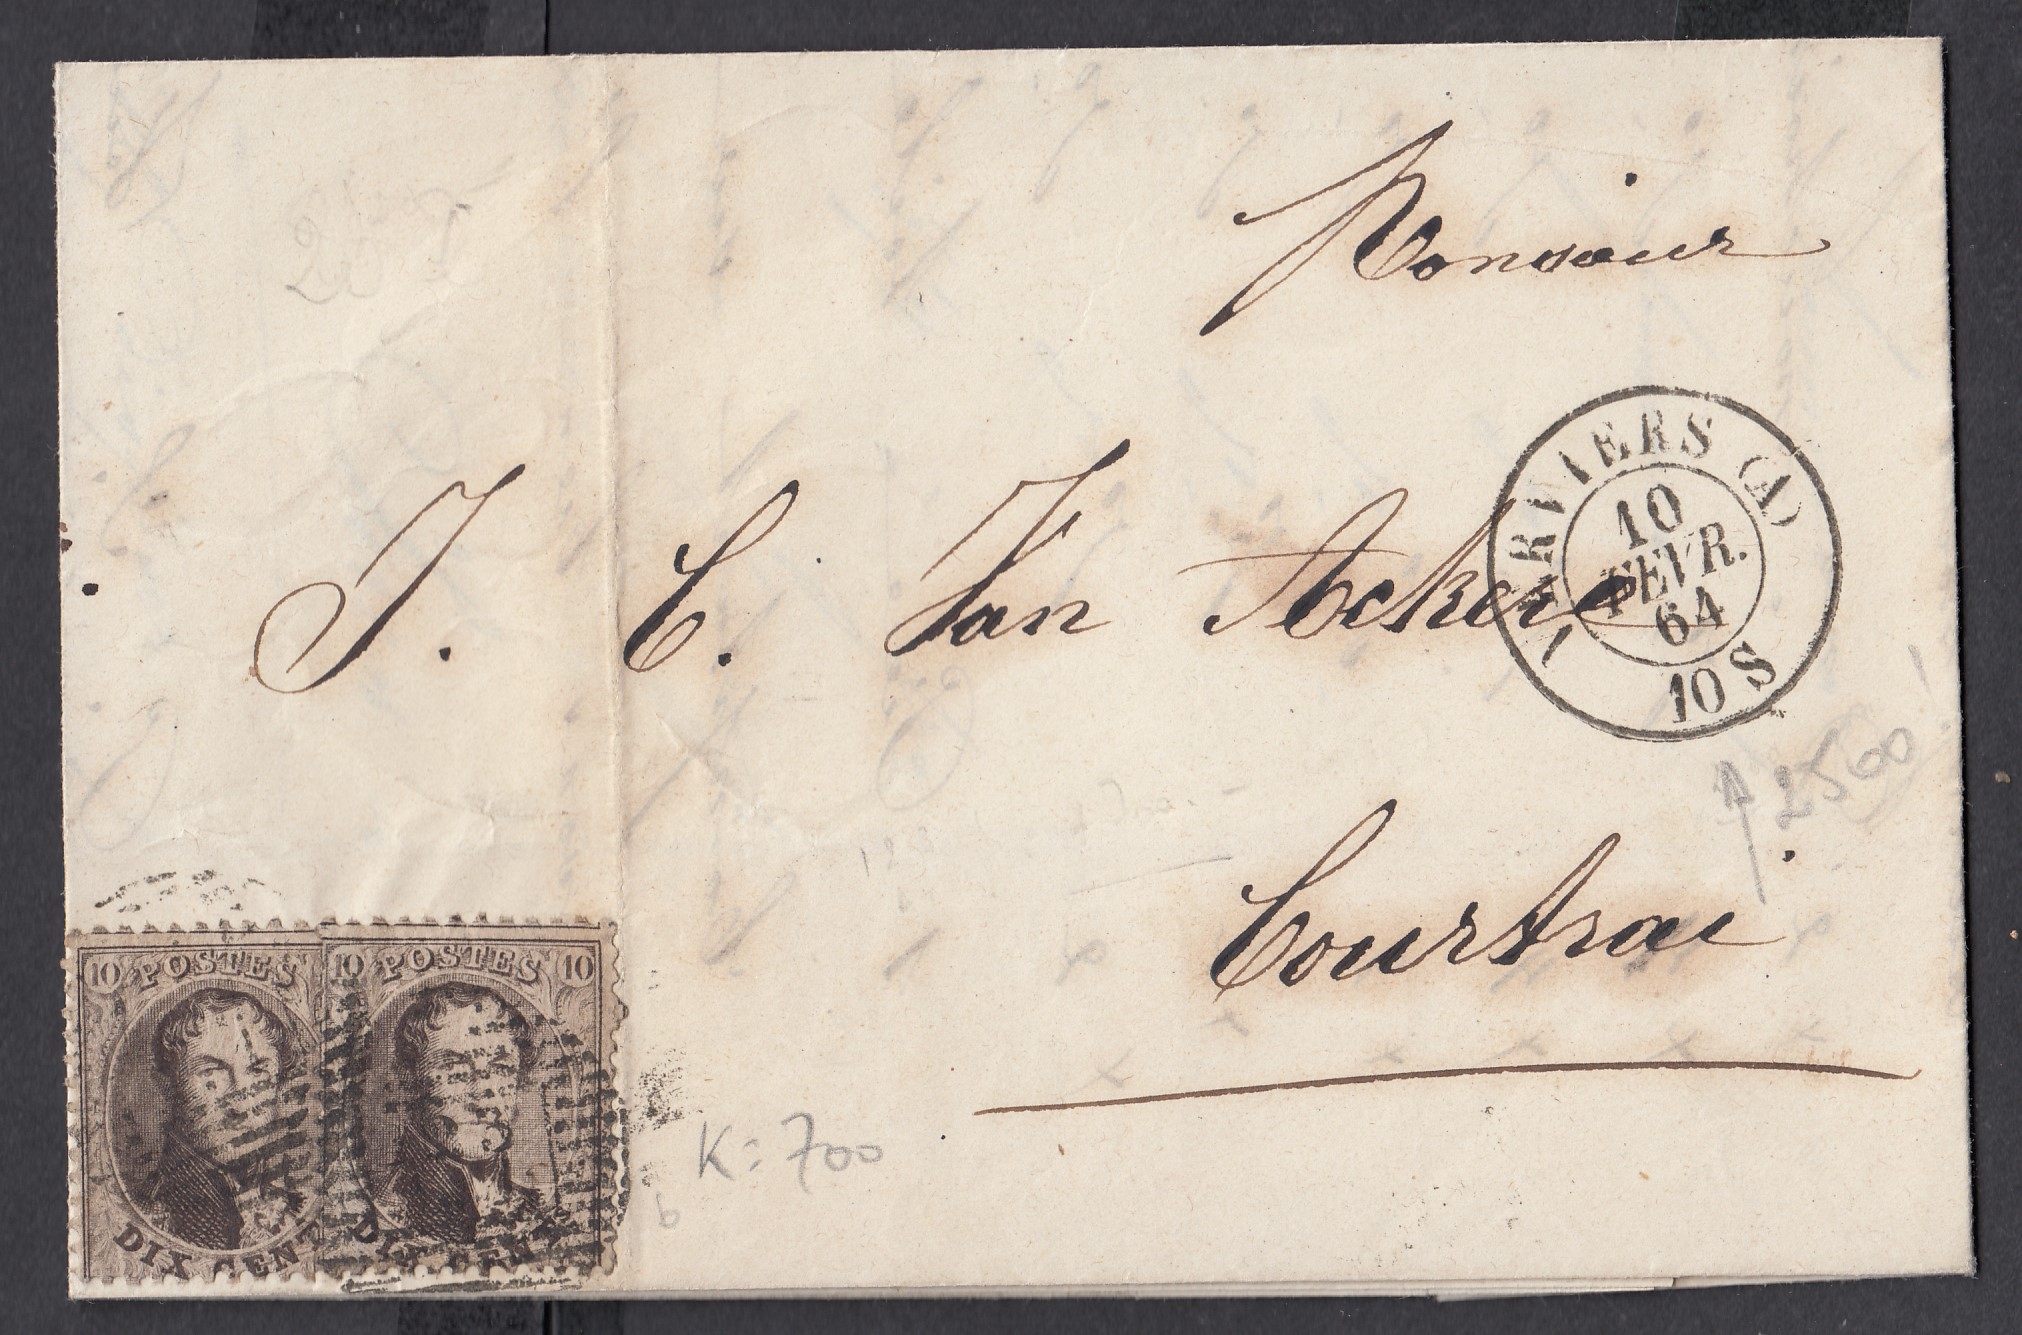 Monsieur
J. C. Van Ackere
VERVIERS (A)
10
FEVR.
64
10 S
2500
Courtrai
10 POSTES
10 POSTES 10
K: 700
b
DIX CENT
DIX CENT